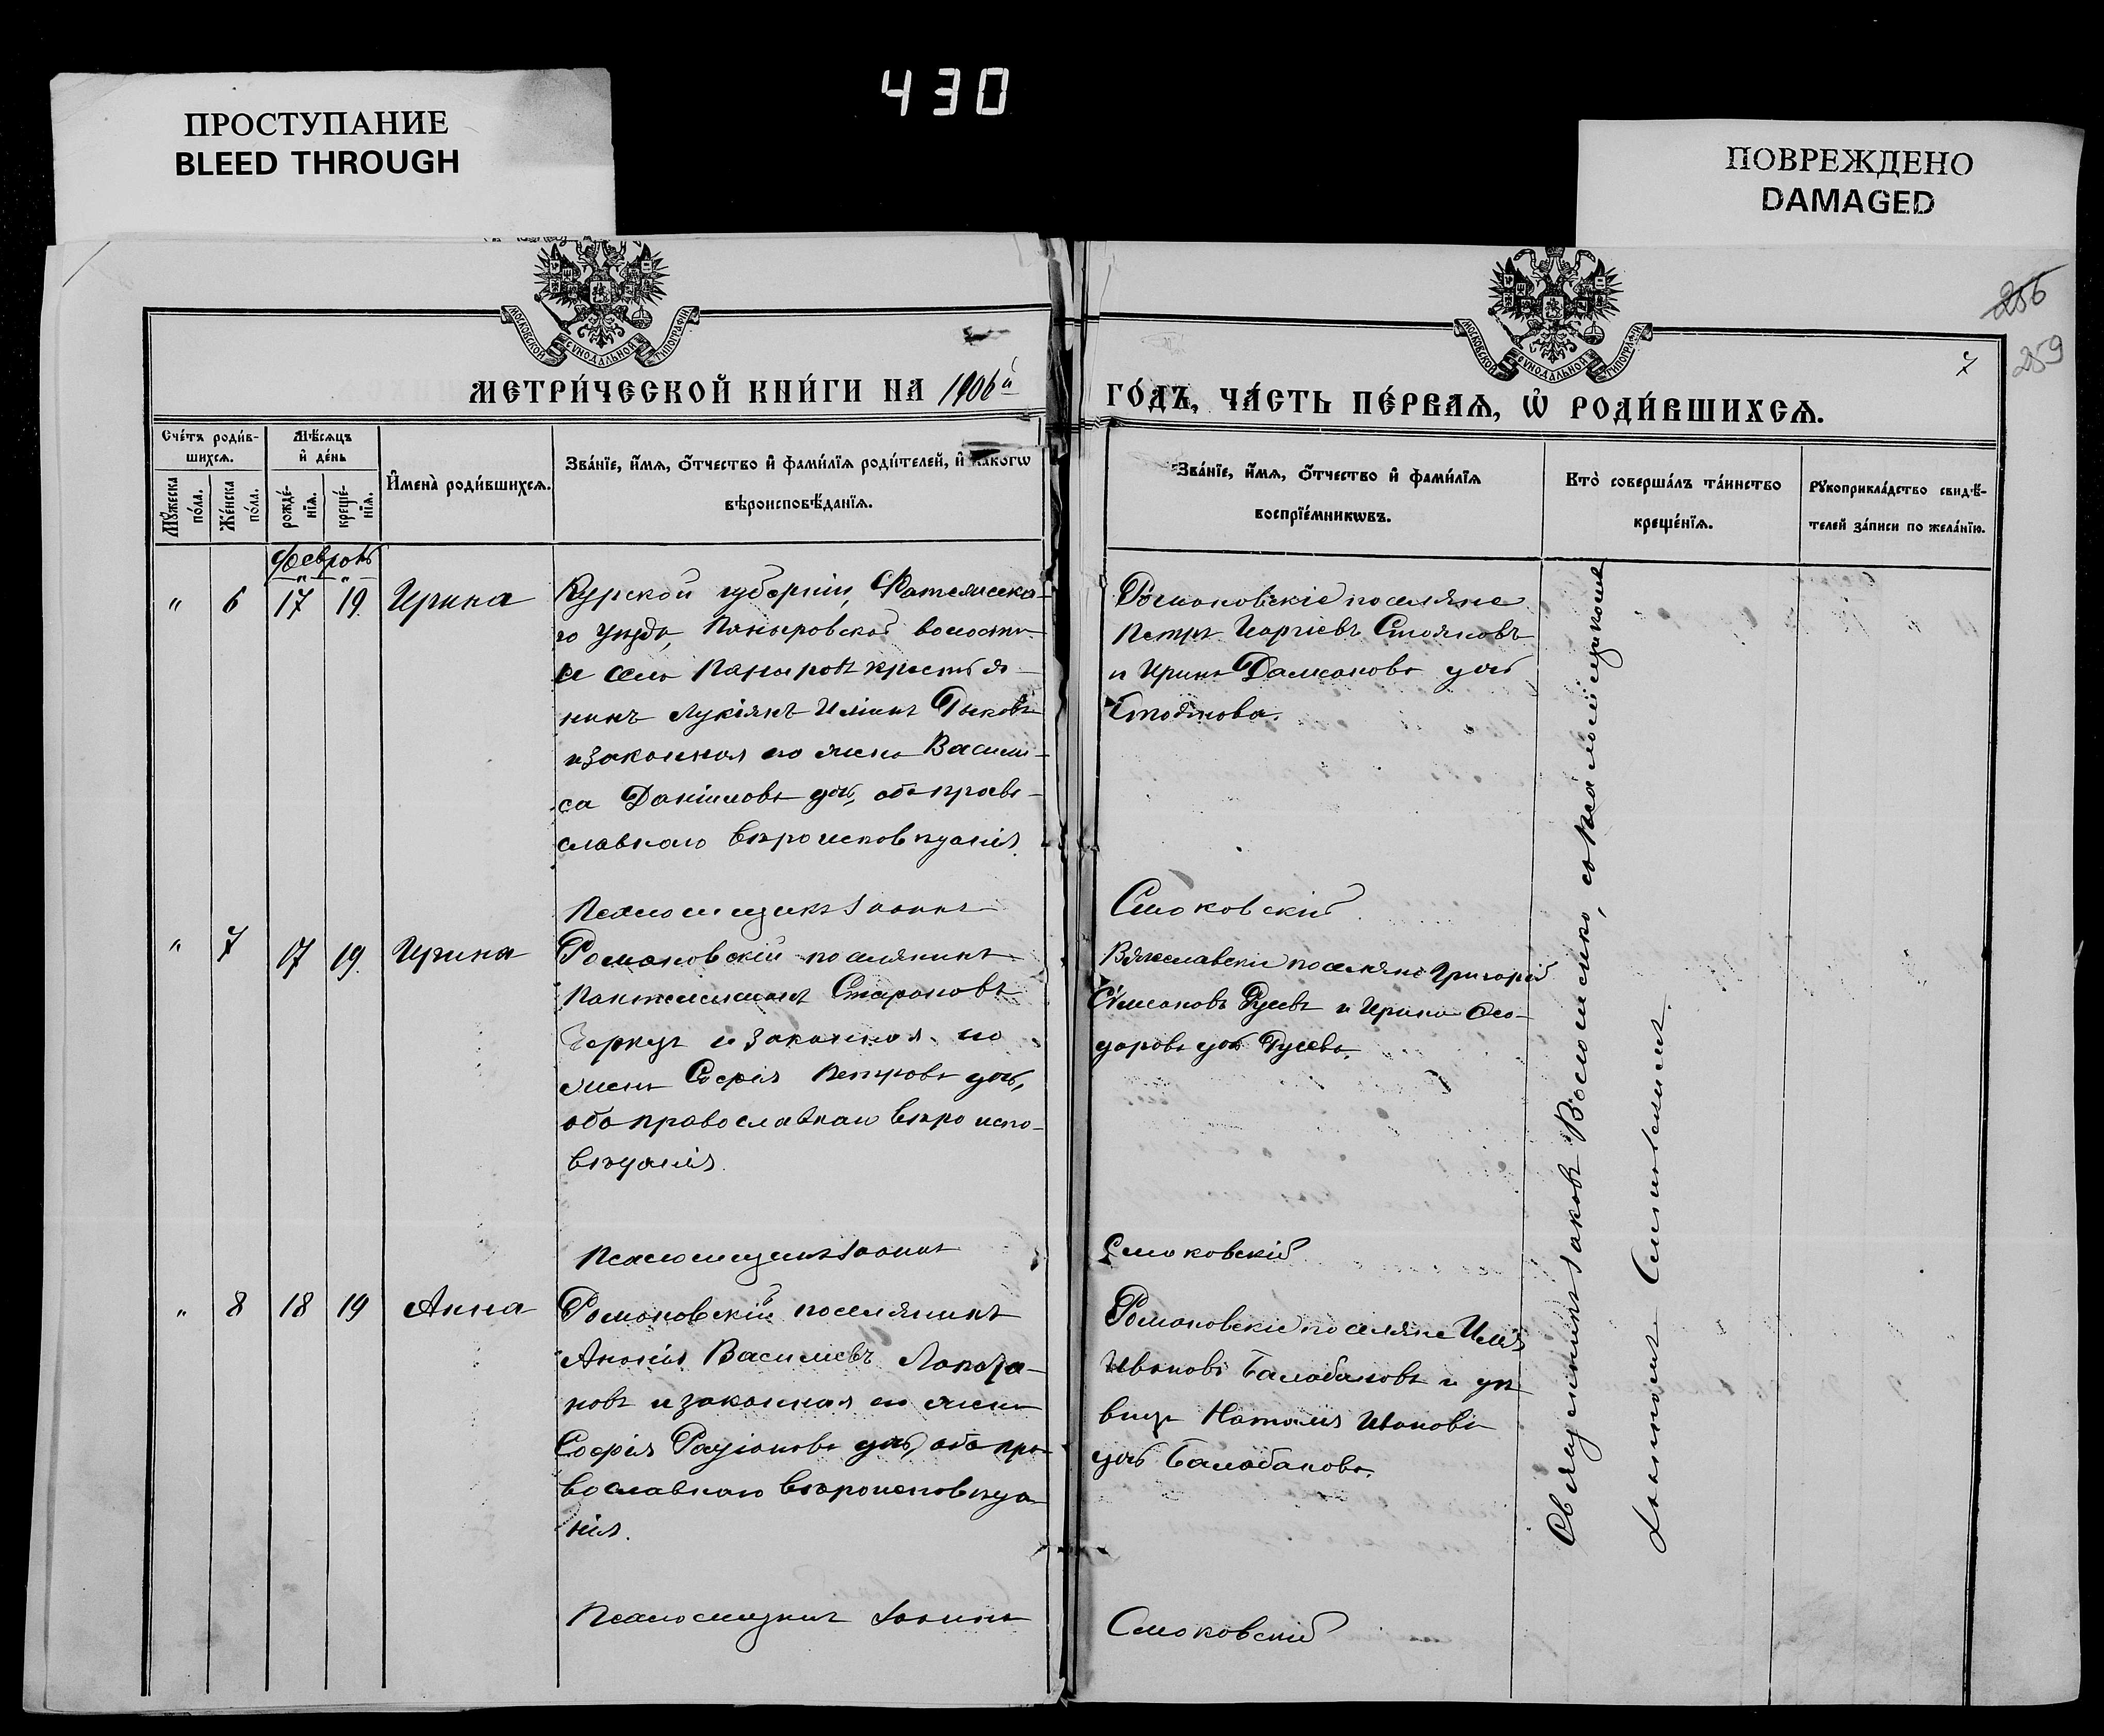 430
ПРОСТУПАНИЕ
BLEED THROUGH
ПОВРЕЖДЕНО
DAMAGED
МОСКОВСКОЙ СѴНОДАЛЬНОЙ ТИПОГРАФІИ
МОСКОВСКОЙ СѴНОДАЛЬНОЙ ТИПОГРАФІИ
256
259
7
МЕТРИ́ЧЕСКОЙ КНИ́ГИ НА 1906й
ГО́ДЪ, ЧА́СТЬ ПЕ́РВАЯ, Ѡ҆ РОДИ́ВШИХСѦ.
Сче́тъ роди́в-
шихсѧ.
Мꙋжеска по́ла.
Же́нска по́ла.
Мѣ́сѧцъ
и҆ де́нь
рожде́-
нїѧ.
креще́-
нїѧ.
И҆мена̀ роди́вшихсѧ.
Зва́нїе, и҆́мѧ, ѻ҆́тчество и҆ фами́лїѧ роди́телей, и҆ како́гѡ
вѣроисповѣ́данїѧ.
Зва́нїе, и҆́мѧ, ѻ҆́тчество и҆ фами́лїѧ
воспрїе́мникѡвъ.
Кто̀ соверша́лъ та́инство
креще́нїѧ.
Рꙋкоприкла́дство свидѣ́-
телей за́писи по жела́нїю.
Февраль
" 6 17 19 Ирина
Курской губерніи, Фатежска-
го уѣзда, Поныровской волости
и села
крестья-
нинъ Лукіянъ Иліинъ Быковъ
и законная его жена Васили-
са Даніилова дочь, оба право-
славнаго вѣроисповѣданія.
Романовскіе поселяне
Петръ Георгіевъ Стояновъ
и Ирина Даміанова дочь
Стоянова.
Псаломщикъ Іоаннъ
Смоковскій
" 7 17 19 Ирина
Романовскій поселянинъ
Пантелеимонъ Стефановъ
и законная его
жена Софія Петрова дочь,
оба православнаго вѣроиспо-
вѣданія.
Вячеславскіе поселяне Григорій
Симеоновъ Гусевъ и Ирина Ѳео-
дорова дочь Гусева.
Псаломщикъ Іоаннъ
Смоковскій
" 8 18 19 Анна
Романовскій поселянинъ
Ананія Васильевъ
новъ и законная его жена
Софія Родіонова дочь, оба пра-
вославнаго вѣроисповѣда-
нія.
Романовскіе поселяне Илія
Ивановъ Балабановъ и дѣ-
вица Наталія Иванова
дочь Балабанова.
Псаломщикъ Іоаннъ
Смоковскій
Священникъ Іаковъ
, со псаломщикомъ
Іоанномъ Смоковскимъ.